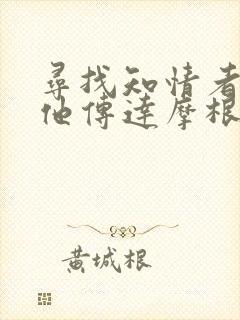 尋找知情者
他傳達摩根
黄城根